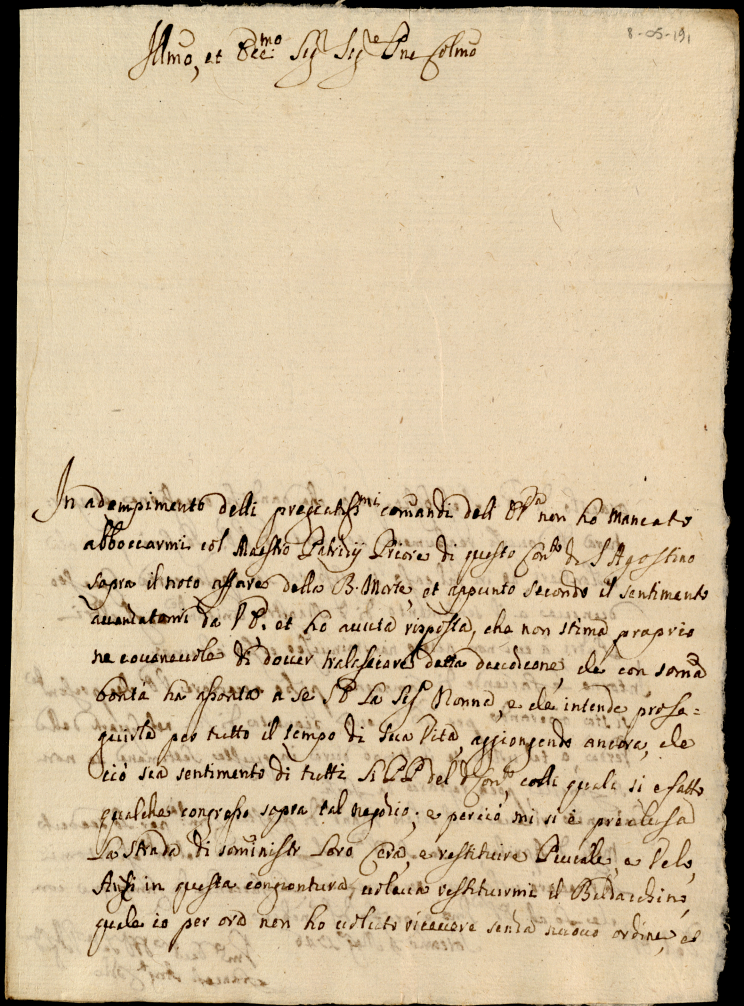 8-05-191
Illmo, et Eccmo Sigr Sigre Pne Colmo
In adempimento delli pregiatissmi comandi dell' E Vra non ho mancato
abboccarmi col Maestro Patrizij Priore di questo Conto di S Agostino
sopra il noto affare della B. Morte, et appunto secondo il sentimento
da V E. et ho avuta risposta, che non stima proprio
ne convenevole di dover tralasciare detta devozione, che con somma
bontà ha a se S E La Sigra Nonna, e che intende prose=
guirla per tutto il tempo di sua Vita, aggiongendo ancora, che
ciò sia sentimento di tutti SS PP del do Conto, colli quali si è fatto
qualche congresso sopra tal negozio; e perciò mi si è preclusa
La strada di somministr loro Cera, e restituire Piviale, e Velo,
Anzi in questa congiontura volevan restituirmi il Baldacchino,
quale io per ora non ho voluto ricevere senza nuovo ordine, et